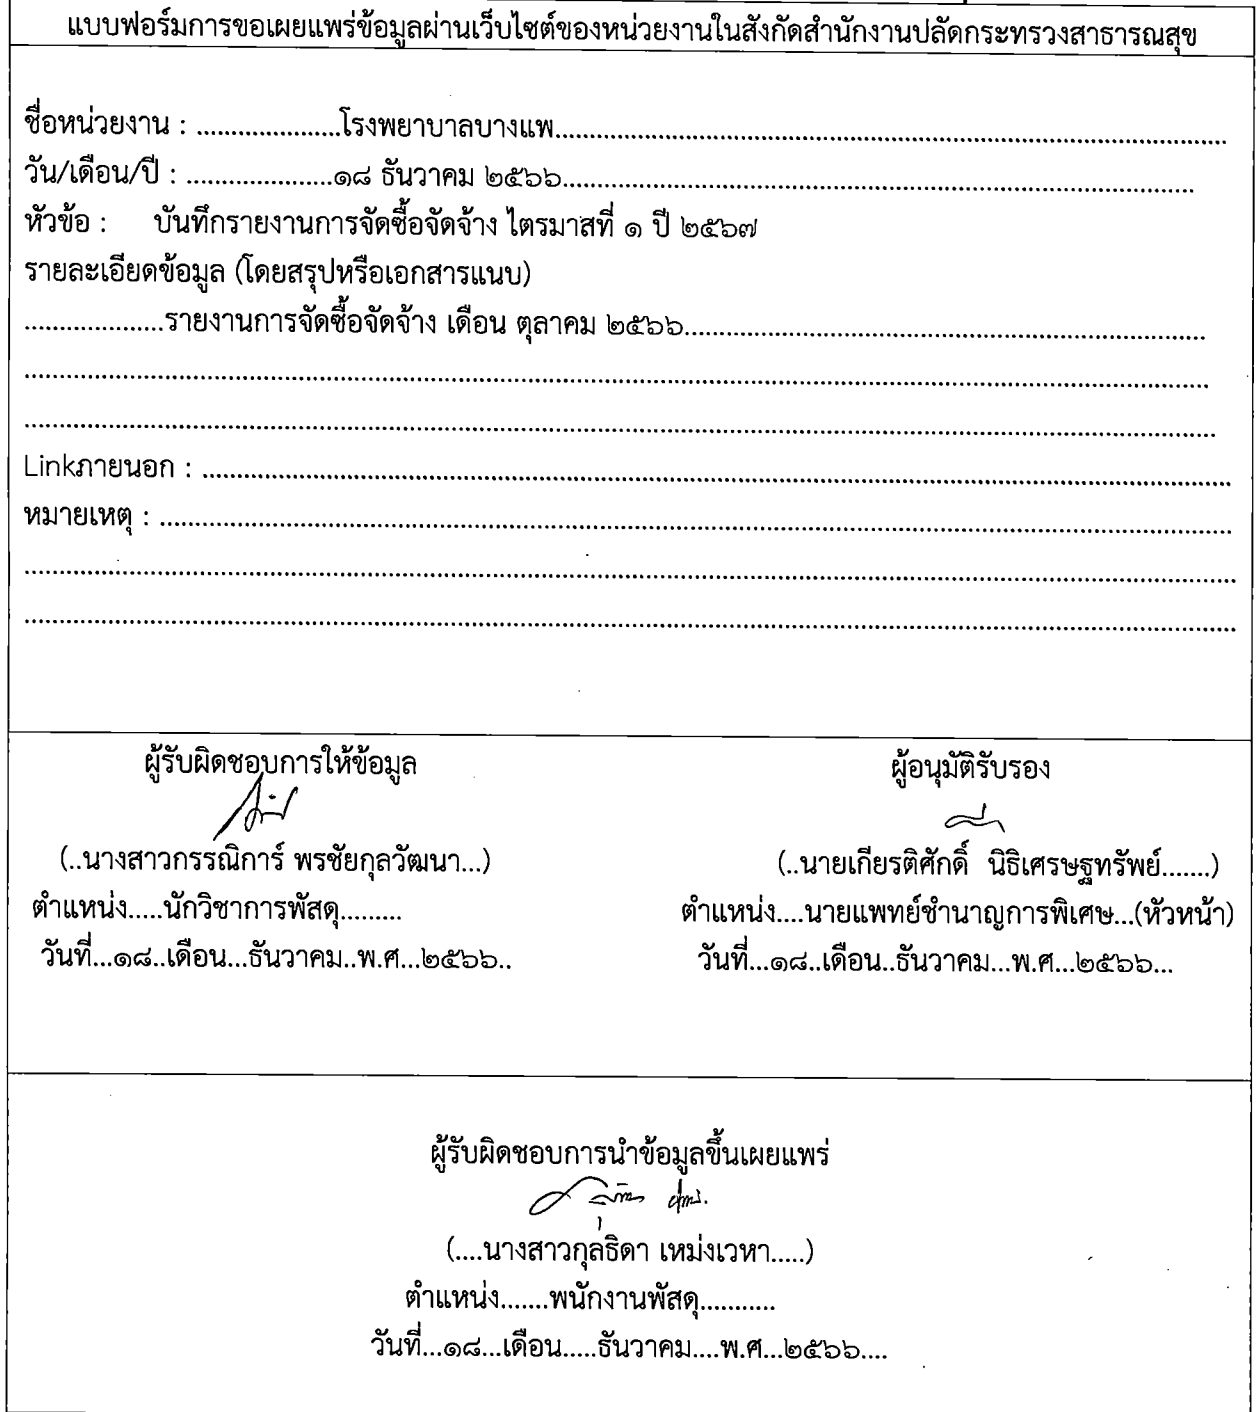 แบบฟอร์มการขอเผยแพร่ข้อมูลผ่านเว็บไซต์ของหน่วยงานในสังกัดสำนักงานปลัดกระทรวงสาธารณสุข
ชื่อหน่วยงาน : .....................โรงพยาบาลบางแพ....................................................................................................
วัน/เดือน/ปี : .....................๑๘ ธันวาคม ๒๕๖๖..............................................................................................
หัวข้อ : บันทึกรายงานการจัดซื้อจัดจ้าง ไตรมาสที่ ๑ ปี ๒๕๖๗
รายละเอียดข้อมูล (โดยสรุปหรือเอกสารแนบ)
....................รายงานการจัดซื้อจัดจ้าง เดือน ตุลาคม ๒๕๖๖.............................................................................
................................................................................................................................................................
................................................................................................................................................................
Linkภายนอก : ..........................................................................................................................................
หมายเหตุ : ................................................................................................................................................
................................................................................................................................................................
................................................................................................................................................................
ผู้รับผิดชอบการให้ข้อมูล
(..นางสาวกรรณิการ์ พรชัยกุลวัฒนา...)
ตำแหน่ง.....นักวิชาการพัสดุ.........
วันที่...๑๘..เดือน...ธันวาคม..พ.ศ...๒๕๖๖..
ผู้อนุมัติรับรอง
(..นายเกียรติศักดิ์ นิธิเศรษฐทรัพย์.......)
ตำแหน่ง....นายแพทย์ชำนาญการพิเศษ...(หัวหน้า)
วันที่...๑๘..เดือน..ธันวาคม...พ.ศ...๒๕๖๖...
ผู้รับผิดชอบการนำข้อมูลขึ้นเผยแพร่
(....นางสาวกุลธิดา เหม่งเวหา.....)
ตำแหน่ง.......พนักงานพัสดุ...........
วันที่...๑๘...เดือน.....ธันวาคม....พ.ศ...๒๕๖๖....